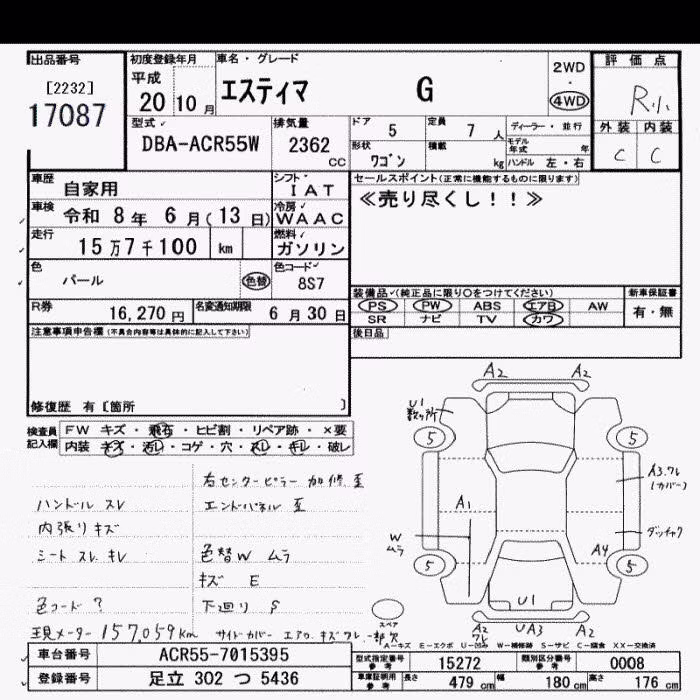 出品番号
[2232]
17087
初度登録年月
平成
20 10 月
車名・グレード
エスティマ G
2WD
・
4WD
評価点
R小
外装 内装
C C
型式
DBA-ACR55W
排気量
2362
CC
ドア
5
定員
7 人
ディーラー・並行
形状
ワゴン
積載
kg
モデル年式 年
ハンドル 左・右
車歴
自家用
シフト
IAT
セールスポイント(正常に機能するものに限ります)
≪売り尽くし!!≫
車検
令和 8年 6月(13日)
冷房
WAAC
走行
15万7千100 km
燃料
ガソリン
色
パール
色替
色コード
8S7
R券
16,270 円
名変通知期限
6月30日
装備品(純正品に限り○をつけてください)
PS PW ABS エアB AW
SR ナビ TV カワ
新車保証書
有・無
後日品
注意事項申告欄(不具合内容等は具体的に記入して下さい)
修復歴 有〔箇所 〕
検査員記入欄
FW キズ・飛石・ヒビ割・リペア跡・×要
内装 キズ・汚レ・コゲ・穴・スレ・キレ・破レ
右センターピラー 加修 歪
ハンドル スレ
エンドパネル 歪
内張り キズ
シート スレ キレ
色替W ムラ
キズ E
色コード ?
下廻り S
現メーター 157,059km
サイドカバー エアロ キズ ワレ 一部欠
A2 A2
U1
数ヶ所
5 5
A3.ワレ
(カバー)
A1
W
ムラ
ダッチャク
A4
5 5
U1
スペア
A2
ワレ
UA3 A2
A-キズ E-エクボ U-凹み W-補修跡 S-サビ C-腐食 XX-交換済
車台番号
ACR55-7015395
登録番号
足立 302 つ 5436
型式指定番号
参考
15272
類別区分番号
参考
0008
車庫証明用
参考
長さ 479 cm 幅 180 cm 高さ 176 cm